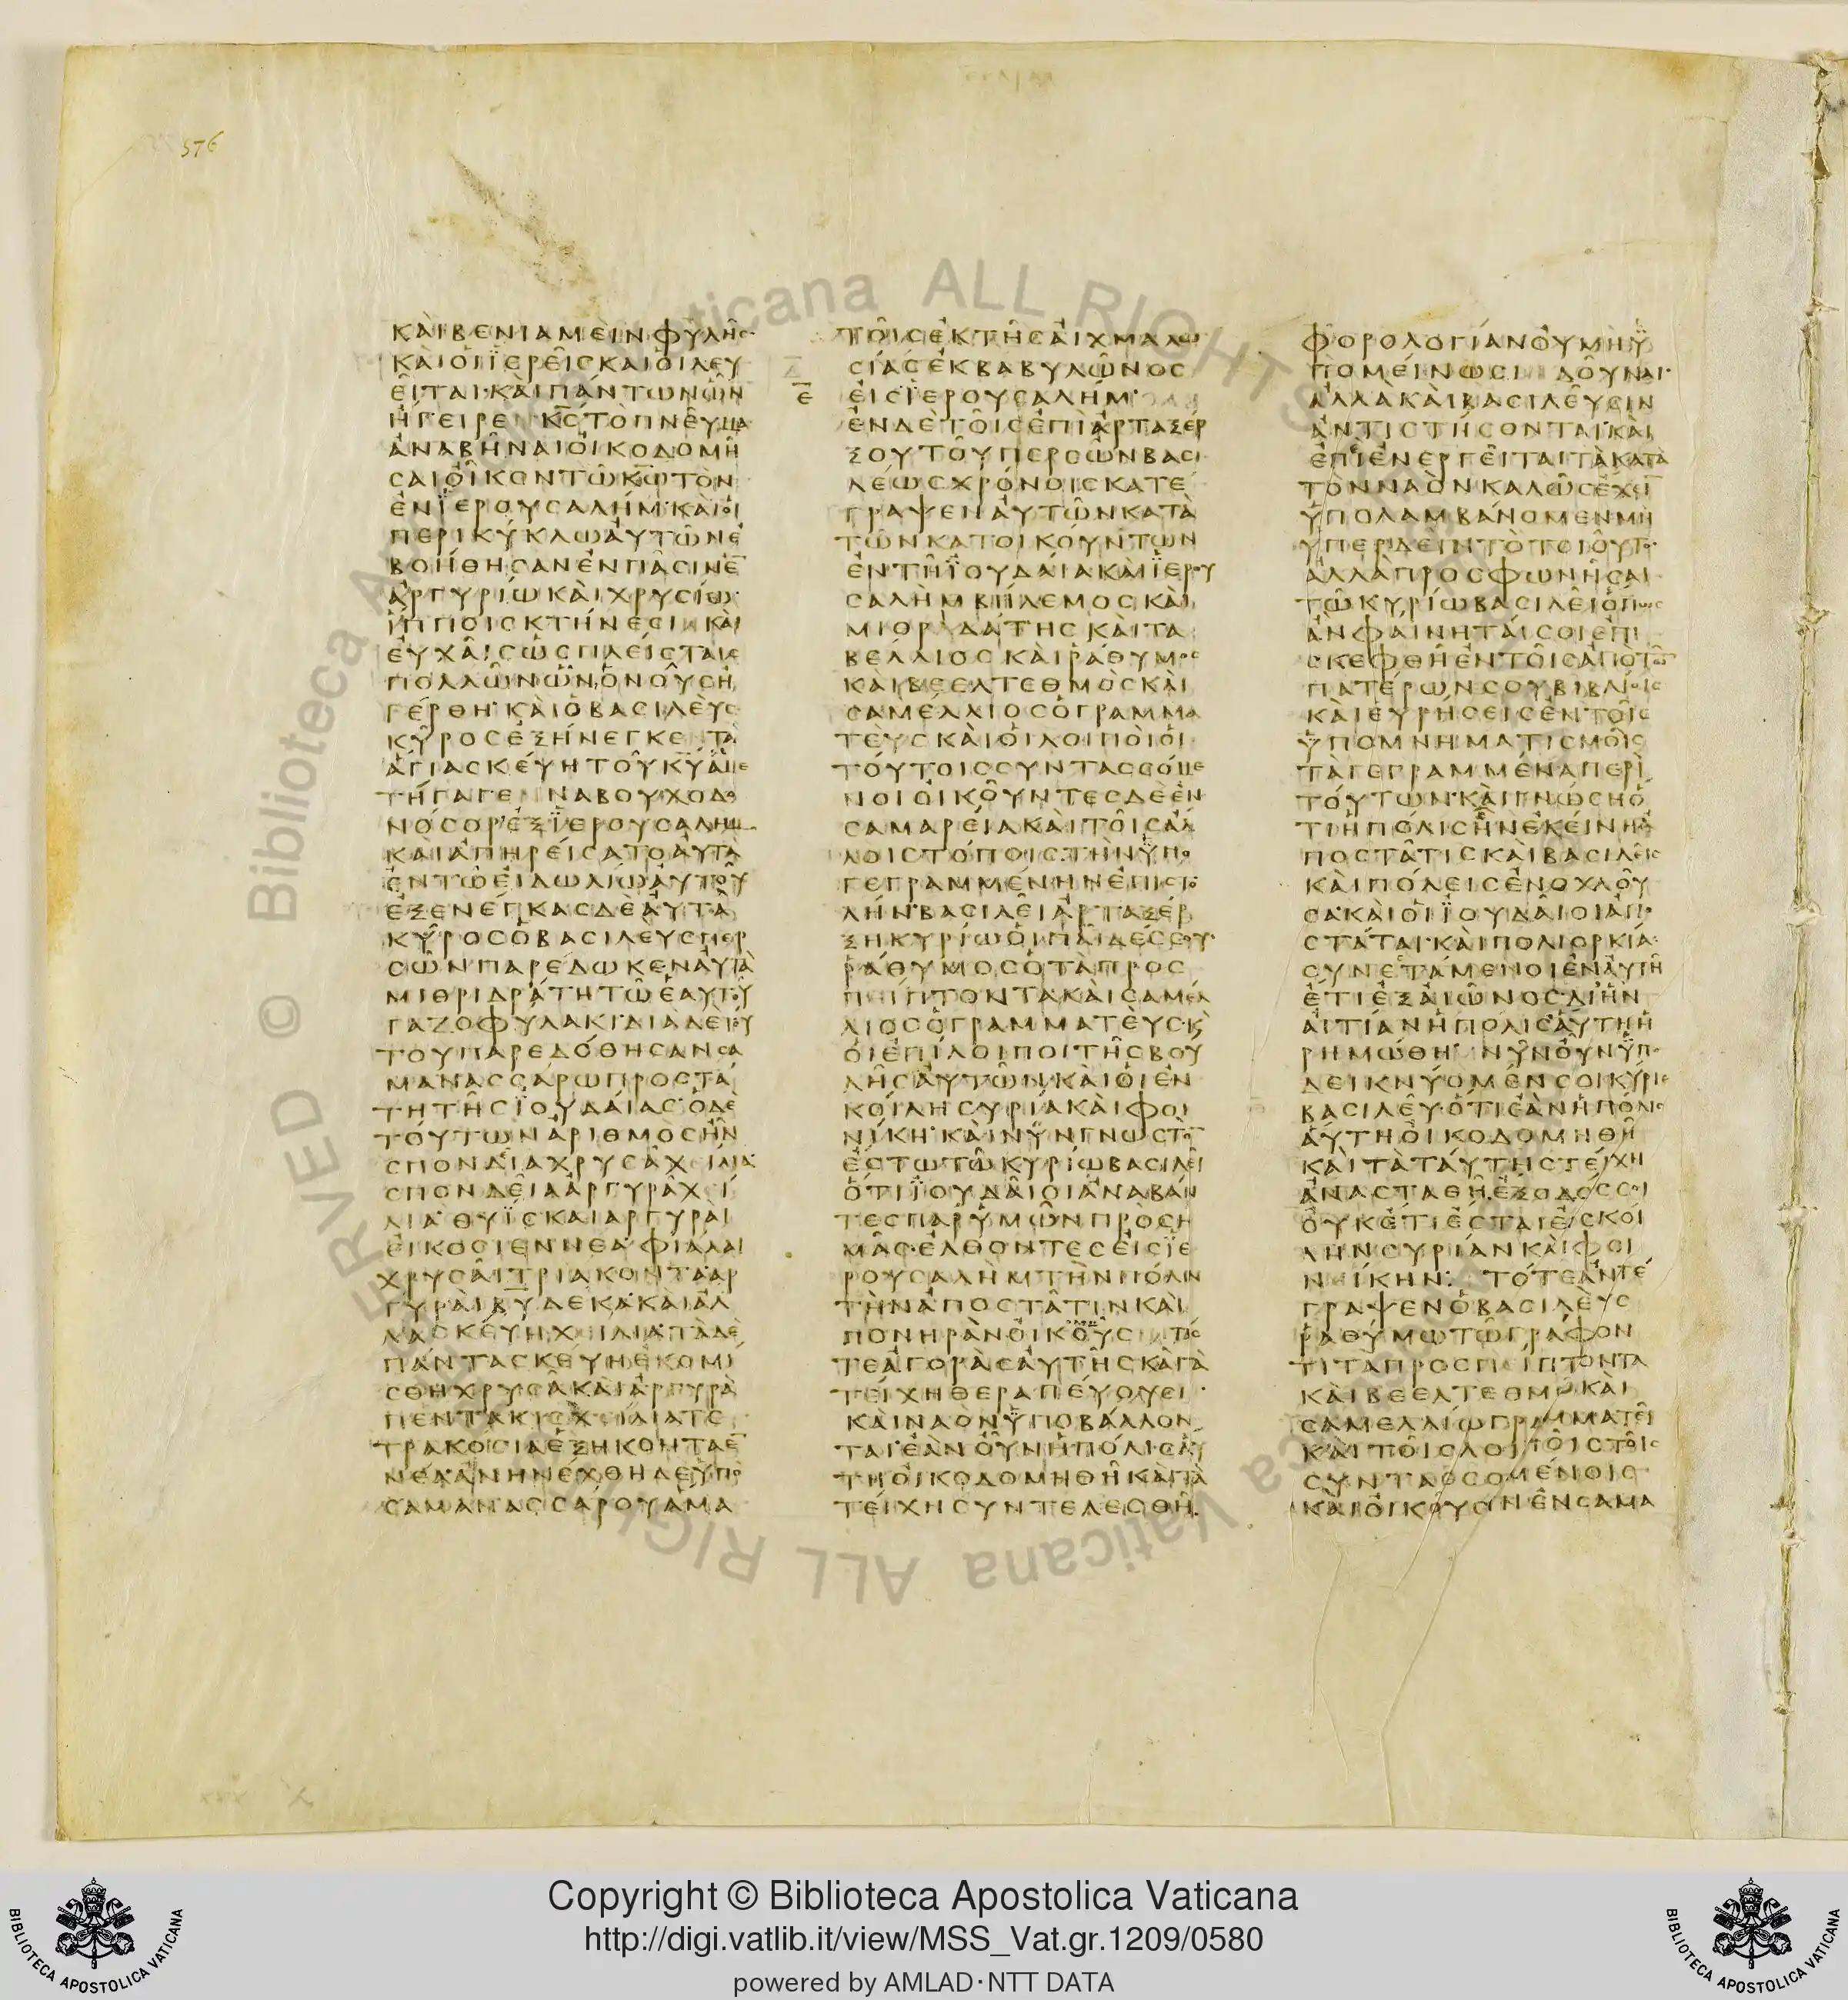 576
ΚΑΙΒΕΝΙΑΜΕΙΝΦΥΛΗΣ
ΚΑΙΟΙΪΕΡΕΙΣΚΑΙΟΙΛΕΥ
ΕΙΤΑΙ·ΚΑΙΠΑΝΤΩΝΩΝ
ΗΓΕΙΡΕΝΚΣΤΟΠΝΕΥΜΑ
ΑΝΑΒΗΝΑΙΟΙΚΟΔΟΜΗ
ΣΑΙΟΙΚΟΝΤΩΚΩΤΟΝ
ΕΝΪΕΡΟΥΣΑΛΗΜ·ΚΑΙΟΙ
ΠΕΡΙΚΥΚΛΩΑΥΤΩΝΕ
ΒΟΗΘΗΣΑΝΕΝΠΑΣΙΝΕ
ΑΡΓΥΡΙΩΚΑΙΧΡΥΣΙΩ·
ΪΠΠΟΙΣΚΤΗΝΕΣΙΝΚΑΙ
ΕΥΧΑΙΣΩΣΠΛΕΙΣΤΑΙΣ
ΠΟΛΛΩΝΩΝΟΝΟΥΣΗ
ΓΕΡΘΗ·ΚΑΙΟΒΑΣΙΛΕΥΣ
ΚΥΡΟΣΕΞΗΝΕΓΚΕΝΤΑ
ΑΓΙΑΣΚΕΥΗΤΟΥΚΥΑΜΕ
ΤΗΓΑΓΕΝΝΑΒΟΥΧΟΔΟ
ΝΟΣΟΡΕΞΪΕΡΟΥΣΑΛΗΜ
ΚΑΙΑΠΗΡΕΙΣΑΤΟΑΥΤΑ
ΕΝΤΩΕΙΔΩΛΙΩΑΥΤΟΥ
ΕΞΕΝΕΓΚΑΣΔΕΑΥΤΑ
ΚΥΡΟΣΟΒΑΣΙΛΕΥΣΠΕΡ
ΣΩΝΠΑΡΕΔΩΚΕΝΑΥΤΑ
ΜΙΘΡΙΔΑΤΗΤΩΕΑΥΤΟΥ
ΓΑΖΟΦΥΛΑΚΙ·ΔΙΑΔΕΤΟΥ
ΤΟΥΠΑΡΕΔΟΘΗΣΑΝΣΑ
ΜΑΝΑΣΣΑΡΩΠΡΟΣΤΑ
ΤΗΤΗΣΪΟΥΔΑΙΑΣ·ΟΔΕ
ΤΟΥΤΩΝΑΡΙΘΜΟΣΗΝ
ΣΠΟΝΔΕΙΑΧΡΥΣΑΧΕΙΛΙΑ·
ΣΠΟΝΔΕΙΑΑΡΓΥΡΑΧΕΙ
ΛΙΑ·ΘΥΪΣΚΑΙΑΡΓΥΡΑΙ
ΕΙΚΟΣΙΕΝΝΕΑ·ΦΙΑΛΑΙ
ΧΡΥΣΑΙΤΡΙΑΚΟΝΤΑ·ΑΡ
ΓΥΡΑΙΒΥΔΕΚΑ·ΚΑΙΑΛ
ΛΑΣΚΕΥΗΧΕΙΛΙΑ·ΤΑΔΕ
ΠΑΝΤΑΣΚΕΥΗΕΚΟΜΙ
ΣΘΗΧΡΥΣΑΚΑΙΑΡΓΥΡΑ
ΠΕΝΤΑΚΙΣΧΕΙΛΙΑΤΕ
ΤΡΑΚΟΣΙΑΕΞΗΚΟΝΤΑΕ
ΝΕΑ·ΑΝΗΝΕΧΘΗΔΕΥΠΟ
ΣΑΜΑΝΑΣΣΑΡΟΥΑΜΑ
ΤΟΙΣΕΚΤΗΣΑΙΧΜΑΛΩ
ΣΙΑΣΕΚΒΑΒΥΛΩΝΟΣ
Ε ΕΙΣΪΕΡΟΥΣΑΛΗΜ·
ΕΝΔΕΤΟΙΣΕΠΙΑΡΤΑΞΕΡ
ΞΟΥΤΟΥΠΕΡΣΩΝΒΑΣΙ
ΛΕΩΣΧΡΟΝΟΙΣΚΑΤΕ
ΓΡΑΨΕΝΑΥΤΩΝΚΑΤΑ
ΤΩΝΚΑΤΟΙΚΟΥΝΤΩΝ
ΕΝΤΗΪΟΥΔΑΙΑΚΑΙΪΕΡΟΥ
ΣΑΛΗΜΒΗΛΕΜΟΣΚΑΙ
ΜΙΘΡΑΔΑΤΗΣΚΑΙΤΑ
ΒΕΛΛΙΟΣΚΑΙΡΑΘΥΜΟΣ
ΚΑΙΒΕΕΛΤΕΘΜΟΣΚΑΙ
ΣΑΜΕΛΛΙΟΣΟΓΡΑΜΜΑ
ΤΕΥΣΚΑΙΟΙΛΟΙΠΟΙΟΙ
ΤΟΥΤΟΙΣΣΥΝΤΑΣΣΟΜΕ
ΝΟΙΟΙΚΟΥΝΤΕΣΔΕΕΝ
ΣΑΜΑΡΕΙΑΚΑΙΤΟΙΣΑΛ
ΛΟΙΣΤΟΠΟΙΣ·ΤΗΝΫΠΟ
ΓΕΓΡΑΜΜΕΝΗΝΕΠΙΣΤΟ
ΛΗΝ·ΒΑΣΙΛΕΙΑΡΤΑΞΕΡ
ΞΗΚΥΡΙΩΟΙΠΑΙΔΕΣΣΟΥ·
ΡΑΘΥΜΟΣΟΤΑΠΡΟΣ
ΠΕΙΠΤΟΝΤΑΚΑΙΣΑΜΕΛ
ΛΙΟΣΟΓΡΑΜΜΑΤΕΥΣΚΑΙ
ΟΙΕΠΙΛΟΙΠΟΙΤΗΣΒΟΥ
ΛΗΣΑΥΤΩΝΚΑΙΟΙΕΝ
ΚΟΙΛΗΣΥΡΙΑΚΑΙΦΟΙ
ΝΙΚΗ·ΚΑΙΝΥΝΓΝΩΣΤΟ
ΕΣΤΩΤΩΚΥΡΙΩΒΑΣΙΛΕΙ
ΟΤΙΪΟΥΔΑΙΟΙΑΝΑΒΑΝ
ΤΕΣΠΑΡΥΜΩΝΠΡΟΣΗ
ΜΑΣ·ΕΛΘΟΝΤΕΣΕΙΣΪΕ
ΡΟΥΣΑΛΗΜΤΗΝΠΟΛΙΝ
ΤΗΝΑΠΟΣΤΑΤΙΝΚΑΙ
ΠΟΝΗΡΑΝΟΙΚΟΔΟΜΟΥΣΙΝΤΑΣ
ΤΕΑΓΟΡΑΣΑΥΤΗΣΚΑΙΤΑ
ΤΕΙΧΗΘΕΡΑΠΕΥΟΥΣΙ·
ΚΑΙΝΑΟΝΫΠΟΒΑΛΛΟΝ
ΤΑΙ·ΕΑΝΟΥΝΗΠΟΛΙΣΑΥ
ΤΗΟΙΚΟΔΟΜΗΘΗΚΑΙΤΑ
ΤΕΙΧΗΣΥΝΤΕΛΕΣΘΗ
ΦΟΡΟΛΟΓΙΑΝΟΥΜΗΫ
ΠΟΜΕΙΝΩΣΙΝΔΟΥΝΑΙ·
ΑΛΛΑΚΑΙΒΑΣΙΛΕΥΣΙΝ
ΑΝΤΙΣΤΗΣΟΝΤΑΙ·ΚΑΙ
ΕΠΙΕΝΕΡΓΕΙΤΑΙΤΑΚΑΤΑ
ΤΟΝΝΑΟΝΚΑΛΩΣΕΧΕΙ
ΫΠΟΛΑΜΒΑΝΟΜΕΝΜΗ
ΥΠΕΡΙΔΕΙΝΤΟΤΟΙΟΥΤΟ·
ΑΛΛΑΠΡΟΣΦΩΝΗΣΑΙ
ΤΩΚΥΡΙΩΒΑΣΙΛΕΙΟΠΩΣ
ΑΝΦΑΙΝΗΤΑΙΣΟΙΕΠΙ
ΣΚΕΦΘΗΕΝΤΟΙΣΑΠΟΤΩ
ΠΑΤΕΡΩΝΣΟΥΒΙΒΛΙΟΙΣ
ΚΑΙΕΥΡΗΣΕΙΣΕΝΤΟΙΣ
ΫΠΟΜΝΗΜΑΤΙΣΜΟΙΣ
ΤΑΓΕΓΡΑΜΜΕΝΑΠΕΡΙ
ΤΟΥΤΩΝ·ΚΑΙΓΝΩΣΗΟ
ΤΙΗΠΟΛΙΣΗΝΕΚΕΙΝΗΑ
ΠΟΣΤΑΤΙΣΚΑΙΒΑΣΙΛΕΙΣ
ΚΑΙΠΟΛΕΙΣΕΝΟΧΛΟΥ
ΣΑ·ΚΑΙΟΙΪΟΥΔΑΙΟΙΑΠΟ
ΣΤΑΤΑΙ·ΚΑΙΠΟΛΙΟΡΚΙΑΣ
ΣΥΝΕΣΤΑΜΕΝΟΙΕΝΑΥΤΗ
ΕΤΙΕΞΑΙΩΝΟΣ·ΔΙΗΝ
ΑΙΤΙΑΝΗΠΟΛΙΣΑΥΤΗΗ
ΡΗΜΩΘΗ·ΝΥΝΟΥΝΫΠΟ
ΔΕΙΚΝΥΟΜΕΝΣΟΙΚΥΡΙΕ
ΒΑΣΙΛΕΥ·ΟΤΙΕΑΝΗΠΟΛΙΣ
ΑΥΤΗΟΙΚΟΔΟΜΗΘΗ
ΚΑΙΤΑΤΑΥΤΗΣΤΕΙΧΗ
ΑΝΑΣΤΑΘΗ·ΕΞΟΔΟΣΣΟΙ
ΟΥΚΕΤΙΕΣΤΑΙΕΙΣΚΟΙ
ΛΗΝΣΥΡΙΑΝΚΑΙΦΟΙ
ΝΕΙΚΗΝ: ΤΟΤΕΑΝΤΕ
ΓΡΑΨΕΝΟΒΑΣΙΛΕΥΣ
ΡΑΘΥΜΩΤΩΓΡΑΦΟΝ
ΤΙΤΑΠΡΟΣΠΕΙΠΤΟΝΤΑ
ΚΑΙΒΕΕΛΤΕΘΜΩΚΑΙ
ΣΑΜΕΛΛΙΩΓΡΑΜΜΑΤΕΙ
ΚΑΙΤΟΙΣΛΟΙΠΟΙΣΤΟΙΣ
ΣΥΝΤΑΣΣΟΜΕΝΟΙΣ
ΚΑΙΟΙΚΟΥΣΙΝΕΝΣΑΜΑ
© Biblioteca Apostolica Vaticana ALL RIGHTS RESERVED
Copyright © Biblioteca Apostolica Vaticana
http://digi.vatlib.it/view/MSS_Vat.gr.1209/0580
powered by AMLAD·NTT DATA
BIBLIOTECA APOSTOLICA VATICANA
BIBLIOTECA APOSTOLICA VATICANA